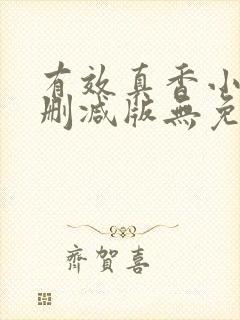 有效真香小
删减版無免
齊賀喜